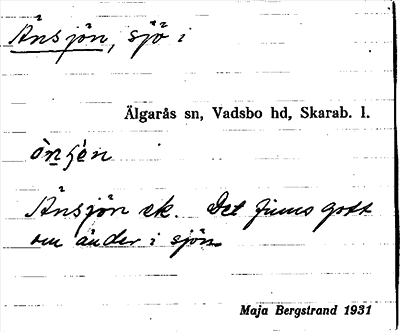 Ånsjön, sjö i
Älgarås sn, Vadsbo hd, Skarab. l.
Ånsjön ek. Det finns gott
om änder i sjön.
Maja Bergstrand 1931